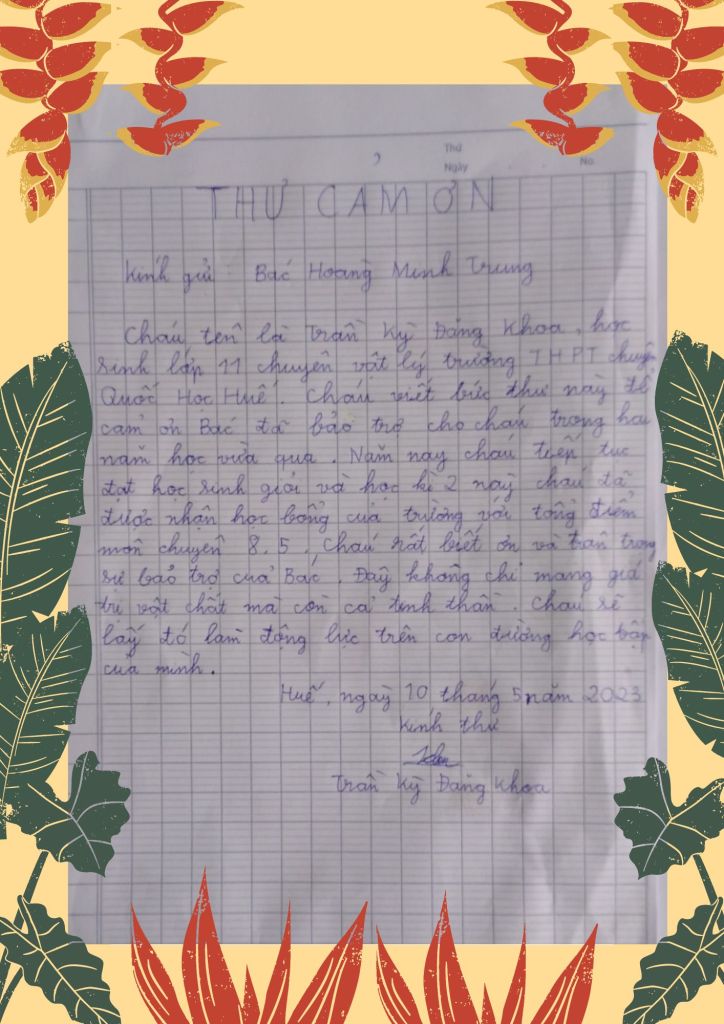 Thứ
Ngày
No.
THƯ CẢM ƠN
Kính gửi : Bác Hoàng Minh Trung
Cháu tên là Trần Kỳ Đăng Khoa, học
sinh lớp 11 chuyên vật lý trường THPT chuyên
Quốc Học Huế. Cháu viết bức thư này để
cảm ơn Bác đã bảo trợ cho cháu trong hai
năm học vừa qua. Năm nay cháu tiếp tục
đạt học sinh giỏi và học kì 2 này cháu đã
được nhận học bổng của trường với tổng điểm
môn chuyên 8,5. Cháu rất biết ơn và trân trọng
sự bảo trợ của Bác. Đây không chỉ mang giá
trị vật chất mà còn cả tinh thần. Cháu sẽ
lấy đó làm động lực trên con đường học tập
của mình.
Huế, ngày 10 tháng 5 năm 2023
Kính thư
Trần Kỳ Đăng Khoa